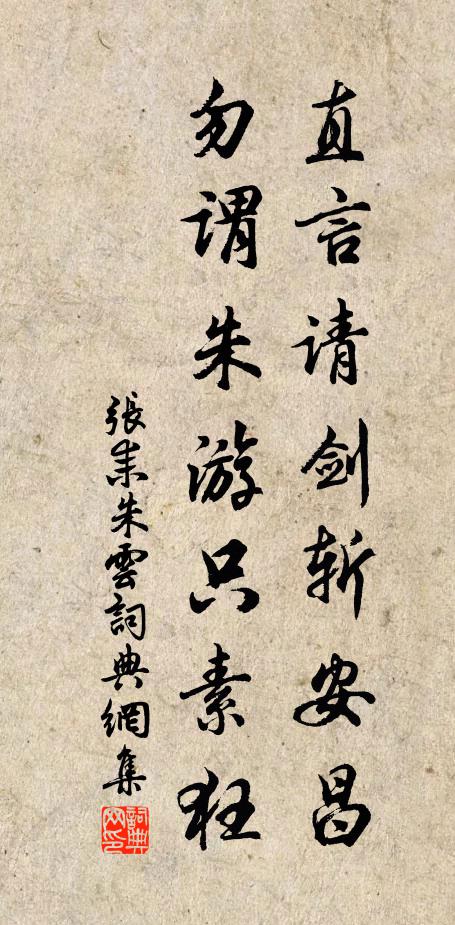 直言请剑斩安昌
勿谓朱游只素狂
張耒朱雲詞典網集
詞典網印